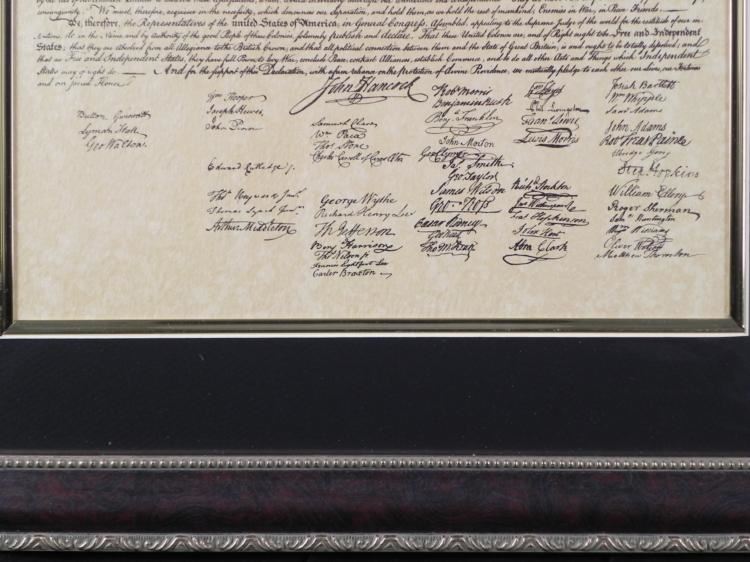 We, therefore, the Representatives of the united States of America, in General Congress, Assembled, appealing to the Supreme Judge of the world for the rectitude of our in-
do, in the Name, and by authority of the good People of these Colonies, solemnly publish and declare, That these United Colonies are, and of Right ought to be Free and Independent
States; that they are Absolved from all Allegiance to the British Crown, and that all political connection between them and the State of Great Britain, is and ought to be totally dissolved; and
that as Free and Independent States, they have full Power to levy War, conclude Peace, contract Alliances, establish Commerce, and to do all other Acts and Things which Independent
States may of right do. And for the support of this Declaration, with a firm reliance on the protection of divine Providence, we mutually pledge to each other our Lives, our Fortunes
and our sacred Honor.
John Hancock
Button Gwinnett
Lyman Hall
Geo Walton.
Wm Hooper
Joseph Hewes,
John Penn
Edward Rutledge /.
Thos Heyward Junr.
Thomas Lynch Junr.
Arthur Middleton
Samuel Chase
Wm Paca
Thos Stone
Charles Carroll of Carrollton
George Wythe
Richard Henry Lee
Th Jefferson
Benj Harrison
Thos Nelson jr.
Francis Lightfoot Lee
Carter Braxton
Robt Morris
Benjamin Rush
Benj Franklin
John Morton
Geo Clymer
Jas Smith
Geo Taylor
James Wilson
Geo Ross
Caesar Rodney
Geo Read
Tho M:Kean
Phil Livingston
Frans Lewis
Lewis Morris
Richd Stockton
Jno Witherspoon
Fras Hopkinson
John Hart
Abra Clark
Josiah Bartlett
Wm Whipple
Saml Adams
John Adams
Robt Treat Paine
Elbridge Gerry
Step Hopkins
William Ellery
Roger Sherman
Saml Huntington
Wm Williams
Oliver Wolcott
Matthew Thornton